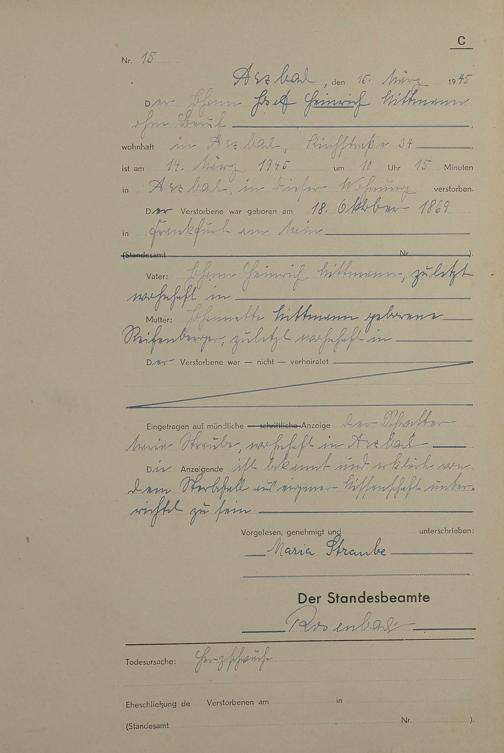 C
Nr. 15
Arzbach, den 15. März 1945
Der Johann Josef Heinrich Wittmann
ohne Beruf
wohnhaft in Arzbach, Kirchstraße 34
ist am 14. März 1945 um 10 Uhr 15 Minuten
in Arzbach, in dieser Wohnung verstorben.
Der Verstorbene war geboren am 18. Oktober 1869
in Frankfurt am Main
(Standesamt Nr. ).
Vater: Johann Heinrich Wittmann, zuletzt
wohnhaft in
Mutter: Wittmann geborene
Reifenberger, zuletzt wohnhaft in
Der Verstorbene war — nicht — verheiratet
Eingetragen auf mündliche — schriftliche — Anzeige der
Maria Straube, wohnhaft in Arzbach
Die Anzeigende ist bekannt und erklärte von
dem Sterbfall aus eigener Wissenschaft unter-
richtet zu sein
Vorgelesen, genehmigt und unterschrieben:
Maria Straube
Der Standesbeamte
Rosenbach
Todesursache: Herzschwäche
Eheschließung de Verstorbenen am in
(Standesamt Nr. ).